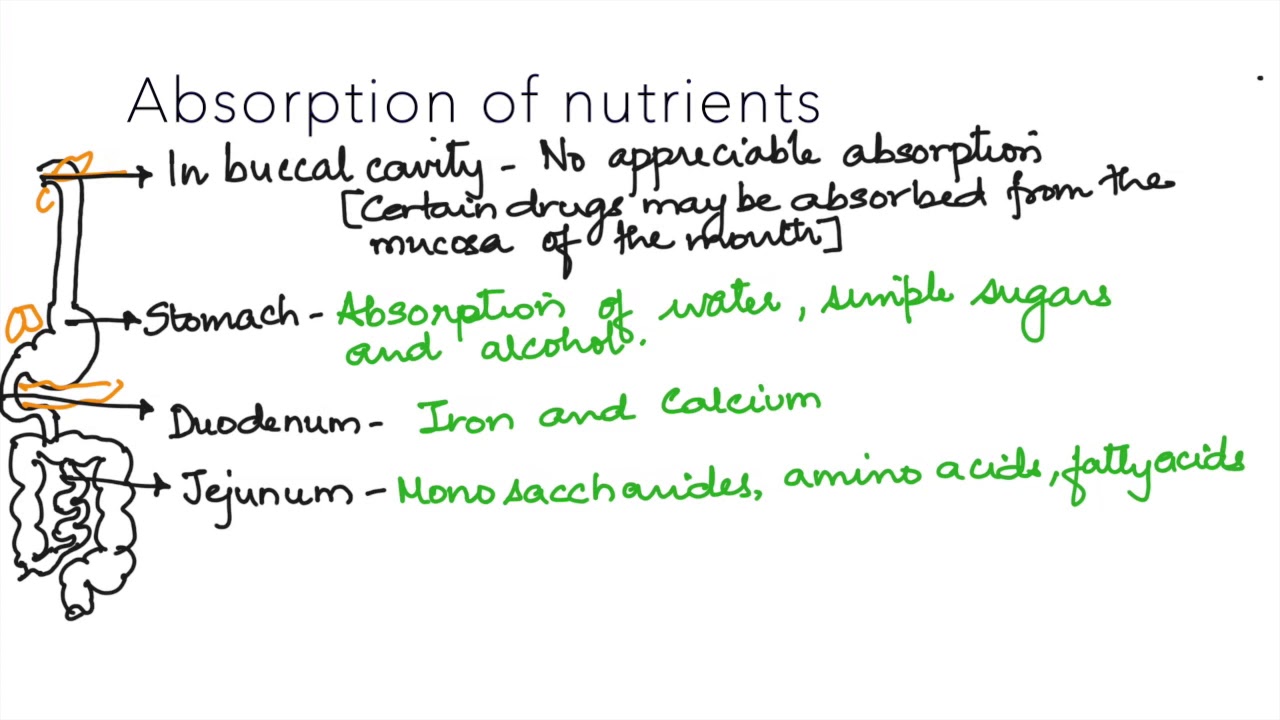 Absorption of nutrients
In buccal cavity - No appreciable absorption
[Certain drugs may be absorbed from the
mucosa of the mouth]
Stomach - Absorption of water, simple sugars
and alcohol.
Duodenum - Iron and Calcium
Jejunum - Monosaccharides, amino acids, fatty acids